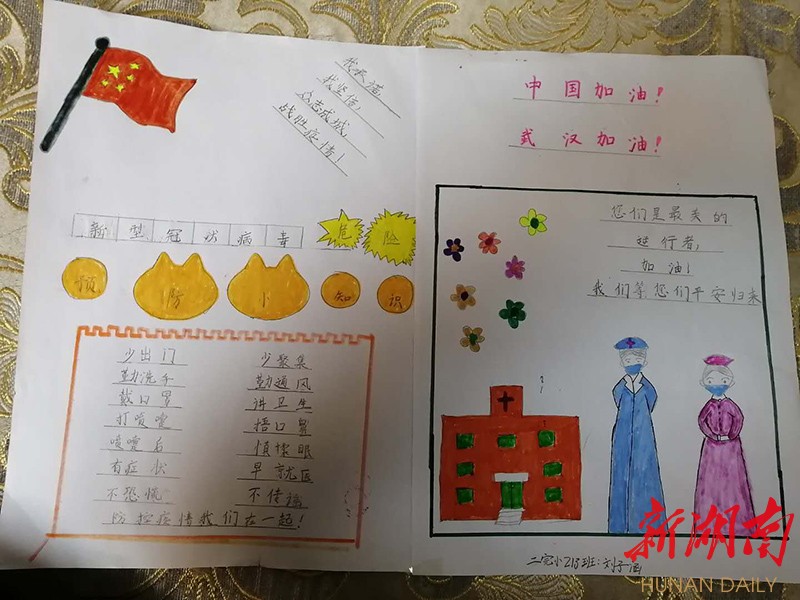 我承诺
我坚信,
众志成城,
战胜疫情!
新型冠状病毒 危险
预防小知识
少出门 少聚集
勤洗手 勤通风
戴口罩 讲卫生
打喷嚏 捂口鼻
喷嚏后 慎揉眼
有症状 早就医
不恐慌 不传谣
防控疫情我们在一起!
中国加油!
武汉加油!
您们是最美的
逆行者,
加油!
我们等您们平安归来
二完小213班:刘子涵
新湖南
HUNAN DAILY